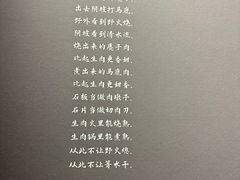 出去阴坡打马鹿,
野外看到野火烧,
阴坡看到清水流。
烧出来的麂子肉,
比起生肉更甜香。
煮出来的马鹿肉,
比起生肉更甜香。
石板当做肉墩子,
石片当做切肉刀。
生肉火里能烧熟,
生肉锅里能煮熟。
从此不让野火熄,
从此不让箐水干。